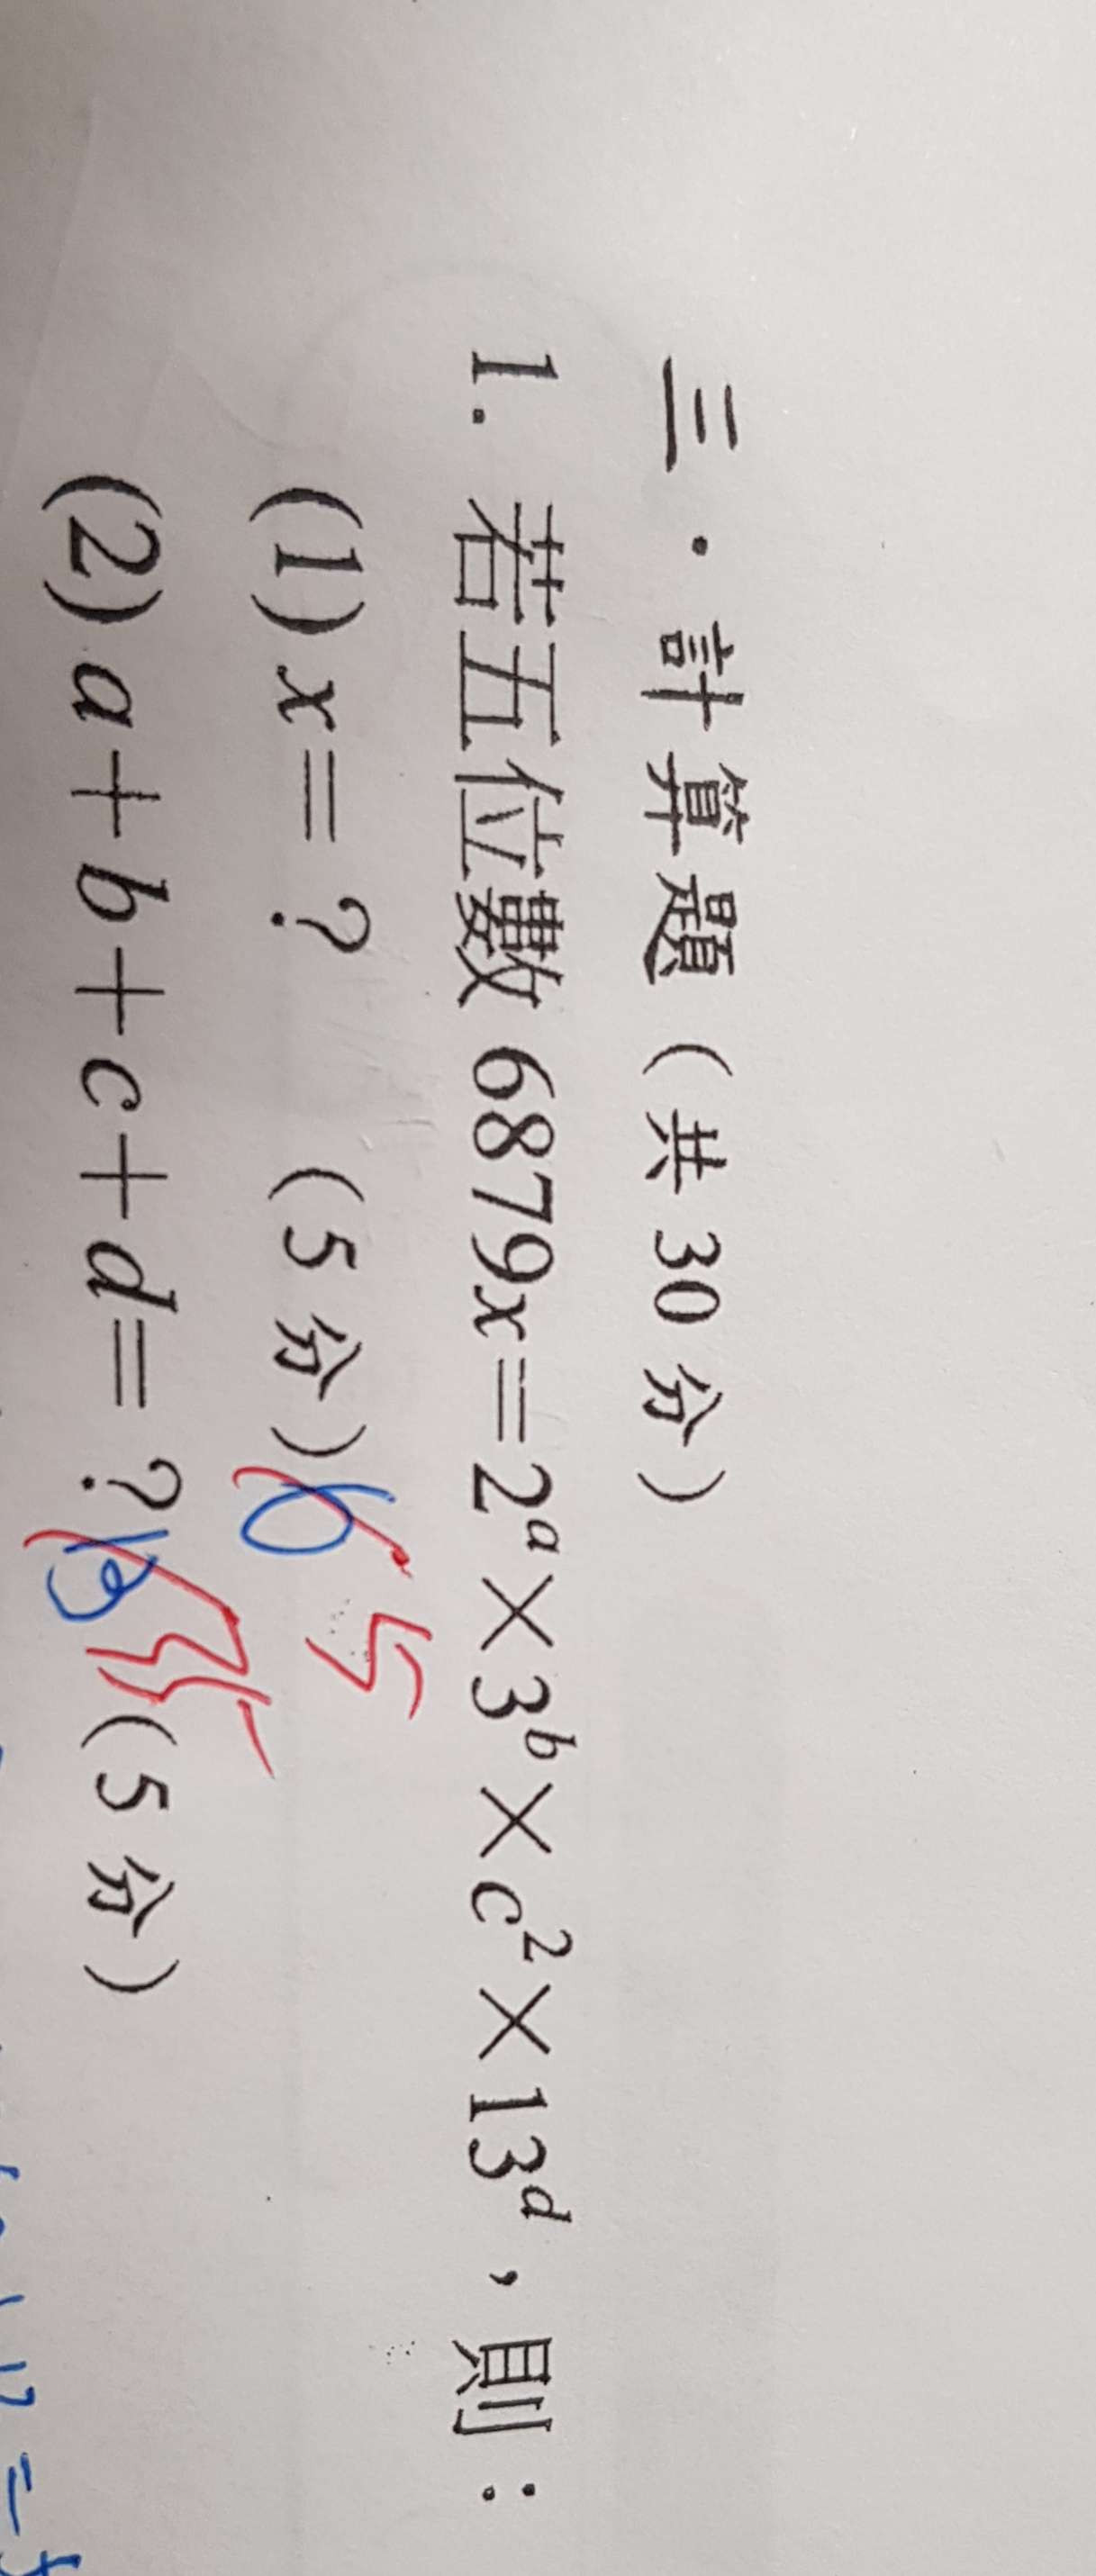 三．計算題（共30分）
1. 若五位數6879x=2ᵃ×3ᵇ×c²×13ᵈ，則：
(1) x=？ (5分) 6 5
(2) a+b+c+d=？ (5分)